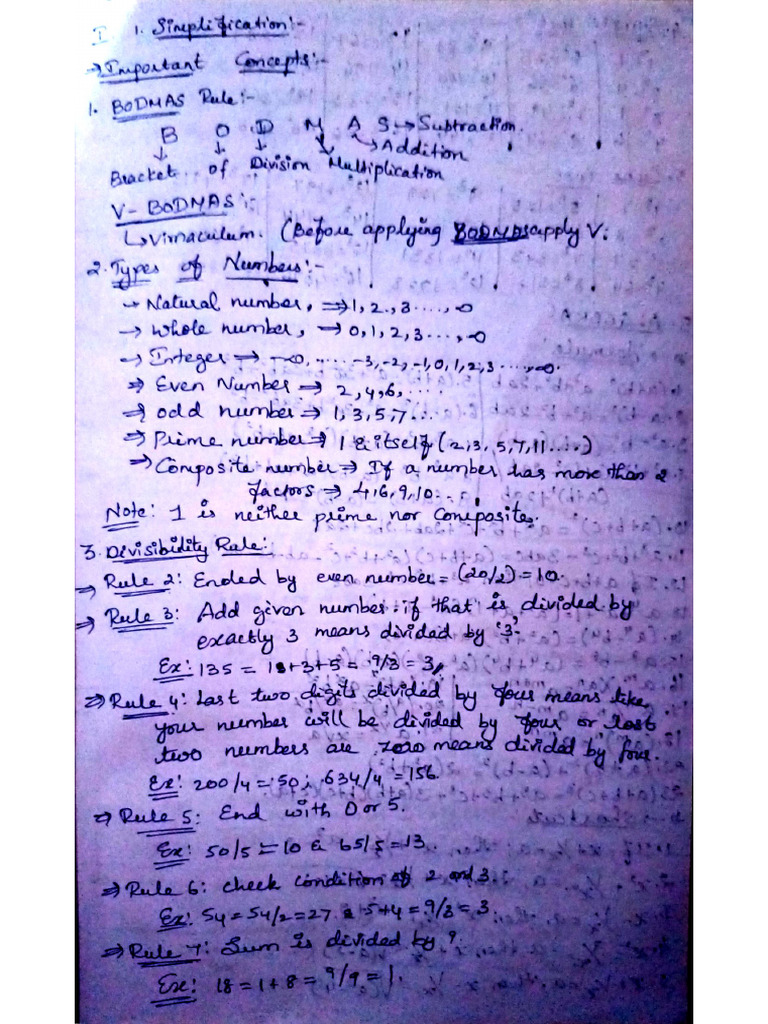 I 1. Simplification:-
→ Important Concepts:-
1. BODMAS Rule:-
B O D M A S → Subtraction.
→ Addition
Bracket of Division Multiplication
V-BODMAS:-
↳ Vinaculum. (Before applying BODMAS apply V.
2. Types of Numbers:-
→ Natural number, ⇒ 1, 2, 3 ...., ∞
→ Whole number, → 0, 1, 2, 3 ..., ∞
→ Integer → -∞, ..... -3, -2, -1, 0, 1, 2, 3 ...., ∞.
⇒ Even Number ⇒ 2, 4, 6, ....
⇒ odd number ⇒ 1, 3, 5, 7 ...
⇒ Prime number ⇒ 1 & itself (2, 3, 5, 7, 11 .....)
⇒ Composite number ⇒ If a number has more than 2
factors → 4, 6, 9, 10 ...
Note: 1 is neither prime nor composite.
3. Divisibidity Rule:
→ Rule 2: Ended by even number = (20/2) = 10.
⇒ Rule 3: Add given number if that is divided by
exactly 3 means divided by '3'.
Ex: 135 = 1+3+5 = 9/3 = 3
⇒ Rule 4: Last two digits divided by four means like
your number will be divided by four or last
two numbers are zero means divided by four.
Ex: 200/4 = 50; 634/4 = 156.
⇒ Rule 5: End with 0 or 5.
Ex: 50/5 = 10 & 65/5 = 13
⇒ Rule 6: check condition of 2 and 3
Ex: 54 = 54/2 = 27 & 5+4 = 9/3 = 3
⇒ Rule 7: Sum is divided by 9.
Ex: 18 = 1+8 = 9/9 = 1.